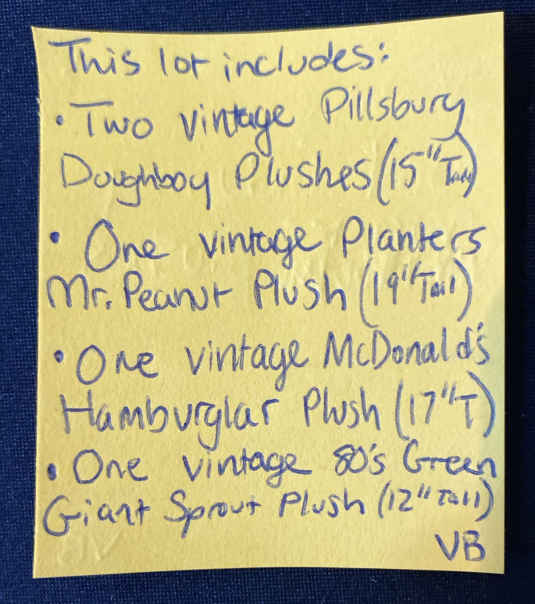 This lot includes:
• Two vintage Pillsbury
Doughboy Plushes (15" Tall)
• One vintage Planters
Mr. Peanut Plush (19" Tall)
• One vintage McDonald's
Hamburglar Plush (17" T)
• One vintage 80's Green
Giant Sprout Plush (12" Tall)
VB